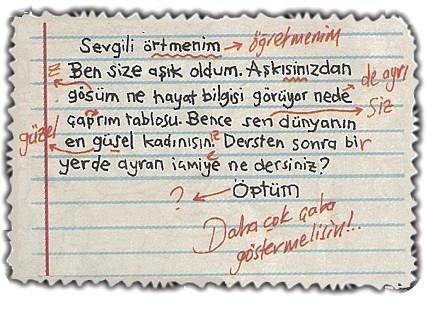 Sevgili örtmenim → öğretmenim
z Ben size aşık oldum. Aşkısinızdan
gösüm ne hayat bilgisi görüyor nede de ayrı
çaprım tablosu. Bence sen dünyanın siz
güzel en güsel kadınısın. iz Dersten sonra bir
yerde ayran içmiye ne dersiniz?
? ← Öptüm
Daha çok çaba
göstermelisin!..